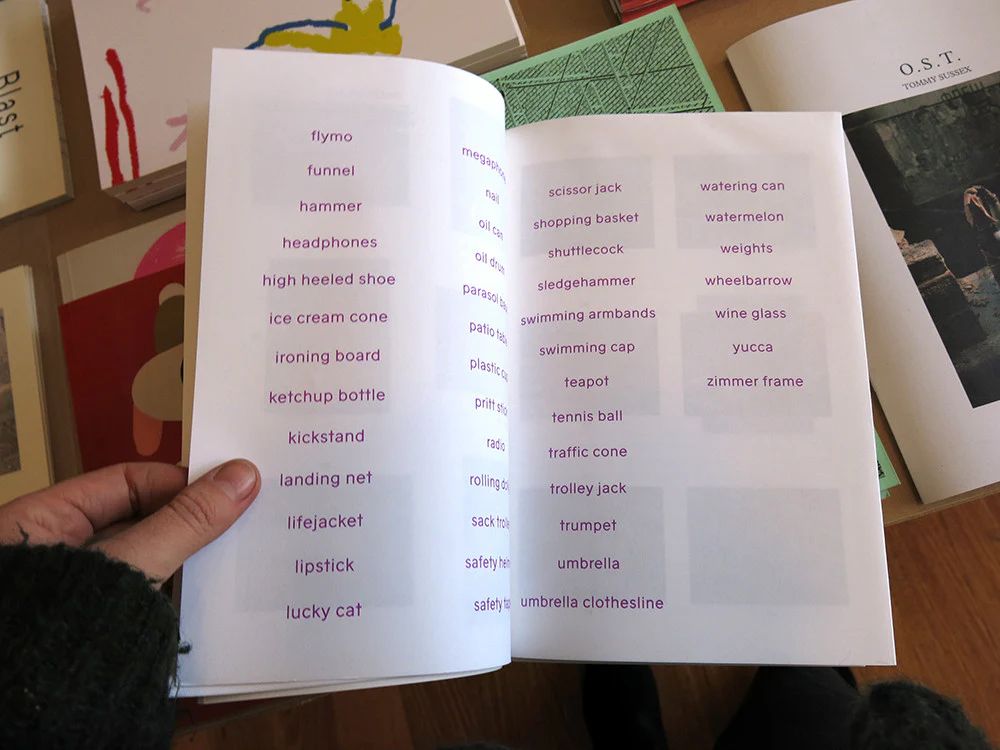 Blast
O.S.T.
TOMMY SUSSEX
flymo
funnel
hammer
headphones
high heeled shoe
ice cream cone
ironing board
ketchup bottle
kickstand
landing net
lifejacket
lipstick
lucky cat
nail
oil can
oil drum
parasol
patio
plastic
pritt
radio
rolling
sack
safety
safety
scissor jack
shopping basket
shuttlecock
sledgehammer
swimming armbands
swimming cap
teapot
tennis ball
traffic cone
trolley jack
trumpet
umbrella
umbrella clothesline
watering can
watermelon
weights
wheelbarrow
wine glass
yucca
zimmer frame